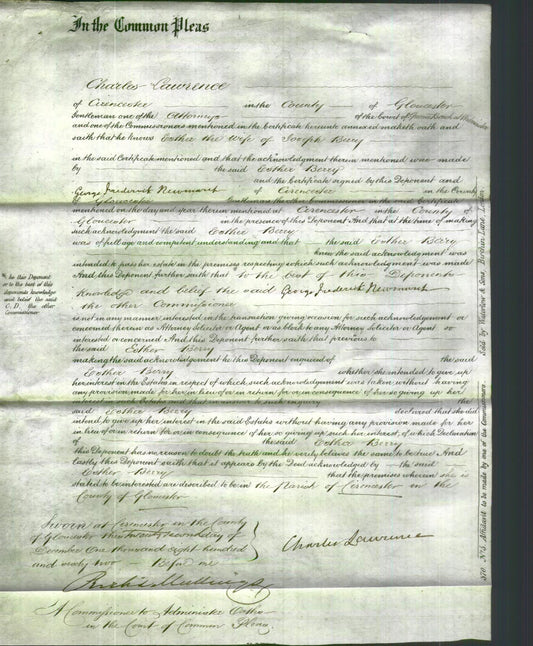 In the Common Pleas
Charles Lawrence
of Cirencester in the County of Gloucester
Gentleman one of the Attorneys of the Court of Queens Bench at Westminster
and one of the Commissioners mentioned in the Certificate hereunto annexed maketh oath and
saith that he knows Esther the Wife of Joseph Berry
in the said Certificate mentioned and that the acknowledgment therein mentioned was made
by the said Esther Berry
and the Certificate signed by this Deponent and
George Frederick Newmarch of Cirencester in the County
of Gloucester Gentleman the other Commissioner in the said Certificate
mentioned on the day and year therein mentioned at Cirencester in the County of
Gloucester in the presence of this Deponent And that at the time of making
such acknowledgment the said Esther Berry
was of full age and competent understanding and that the said Esther Berry
knew the said acknowledgment was
intended to pass her estate in the premises respecting which such acknowledgment was made
And this Deponent further saith that to the best of this Deponents
knowledge and belief the said George Frederick Newmarch
the other Commissioner
is not in any manner interested in the transaction giving occasion for such acknowledgment or
concerned therein as Attorney Solicitor or Agent or as Clerk to any Attorney Solicitor or Agent so
interested or concerned And this Deponent further saith that previous to
the said Esther Berry
making the said acknowledgment he this Deponent inquired of the said
Esther Berry whether she intended to give up
her interest in the Estates in respect of which such acknowledgment was taken without having
any provision made for her in lieu of or in return for or in consequence of her so giving up her
interest in such Estates and that in answer to such inquiry the
said Esther Berry declared that she did
intend to give up her interest in the said Estates without having any provision made for her
in lieu of or in return for or in consequence of her so giving up such her interest, of which Declaration
of the said Esther Berry
this Deponent has no reason to doubt the truth and he verily believes the same to be true And
lastly this Deponent saith that it appears by the Deed acknowledged by the said
Esther Berry that the premises wherein she is
stated to be interested are described to be in the Parish of Cirencester in the
County of Gloucester
Sworn at Cirencester in the County
of Gloucester this twenty second day of
December One thousand eight hundred
and sixty two Before me
Charles Lawrence
A Commissioner to Administer Oaths
in the Court of Common Pleas
he this Deponent
or to the best of this
deponents knowledge
and belief the said
C. D. the other
Commissioner
370. Nº 5. Affidavit to be made by one of the Commissioners. Sold by Waterlow & Sons, Birchin Lane, London.